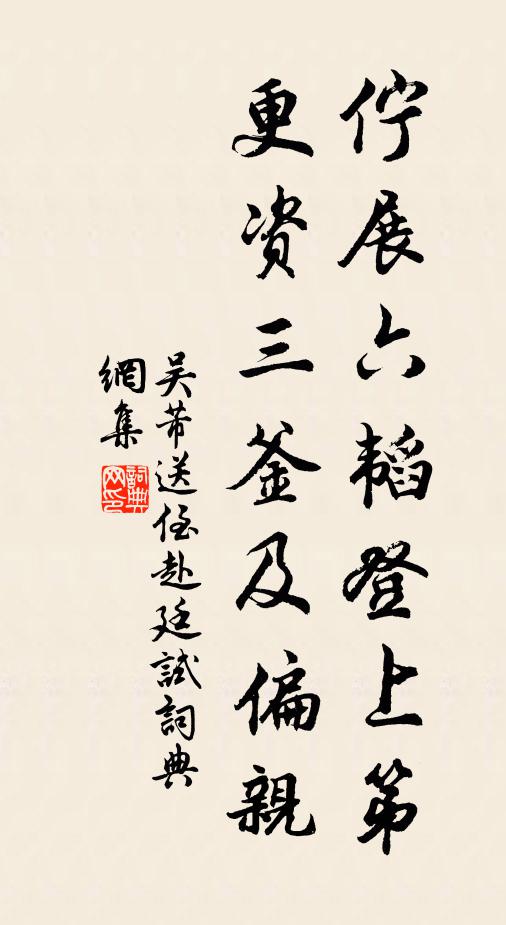 佇展六韜登上第
更資三釜及偏親
吴芾送侄赴廷試詞典
網集
詞典
网印